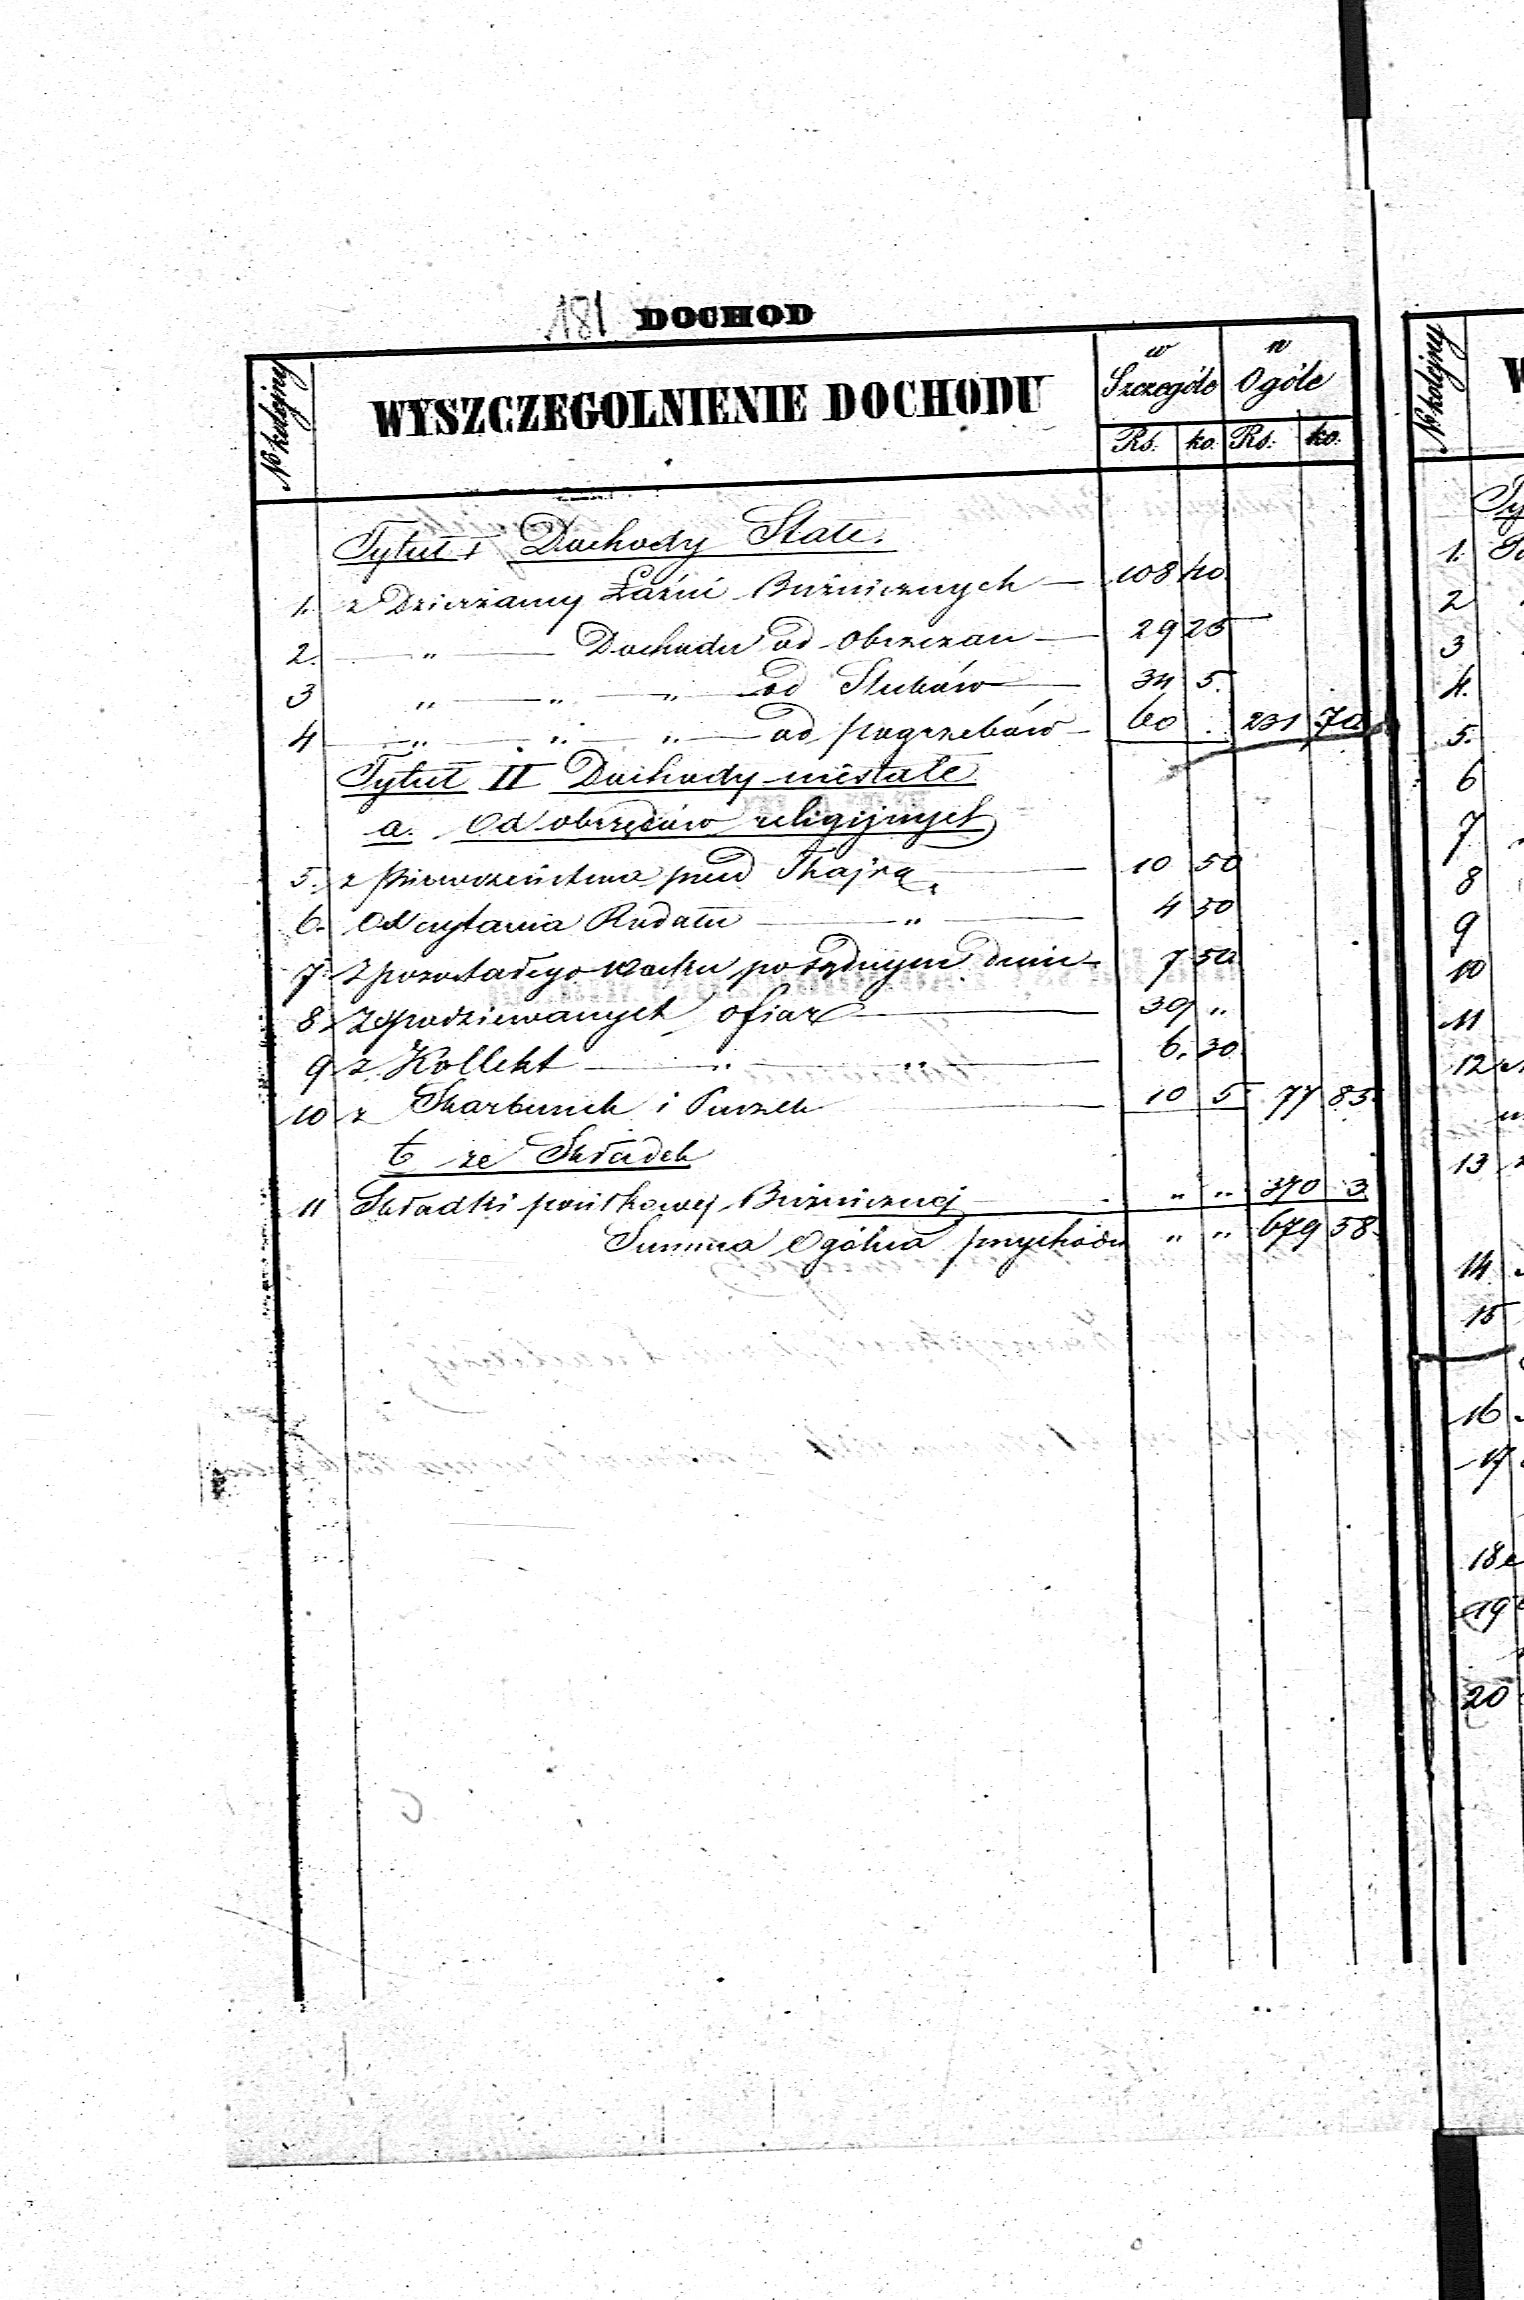 181 DOCHOD
No kolejny WYSZCZEGOLNIENIE DOCHODU w Szczególe w Ogóle
Rs. ko. Rs. ko.
Tytuł I Dochody Stałe.
1. z Dzierżawy Łaźni Bużnicznych — 108 40
2. — „ — Dochodu od obrzezan — 29 25
3 „ — „ — „ — od Slubów — 34 5.
4 — „ — „ — „ — od pogrzebów — 60 . 231 70
Tytuł II Dochody niestałe
a. Od obrzędów religijnych
5. z pierwszeństwa przed Thajrą — 10 50
6. Od czytania Rodałn — „ — 4 50
7. Z pozostałego wosku po sądnym dniu — 7 50
8 Z spodziewanych ofiar — 39 „
9 z Kollekt — „ — „ — 6. 30
10 z Skarbonek i Puszek — 10 5 77 85.
b ze Składek
11 Składki posiłkowej Bużnicznej — „ „ 370 3
Summa Ogólna przychodu „ „ 679 58.
No kolejny W
Ty
1.
2
3
4.
5.
6
7
8
9
10
11
12
13
14
15
16
17
18
19
20